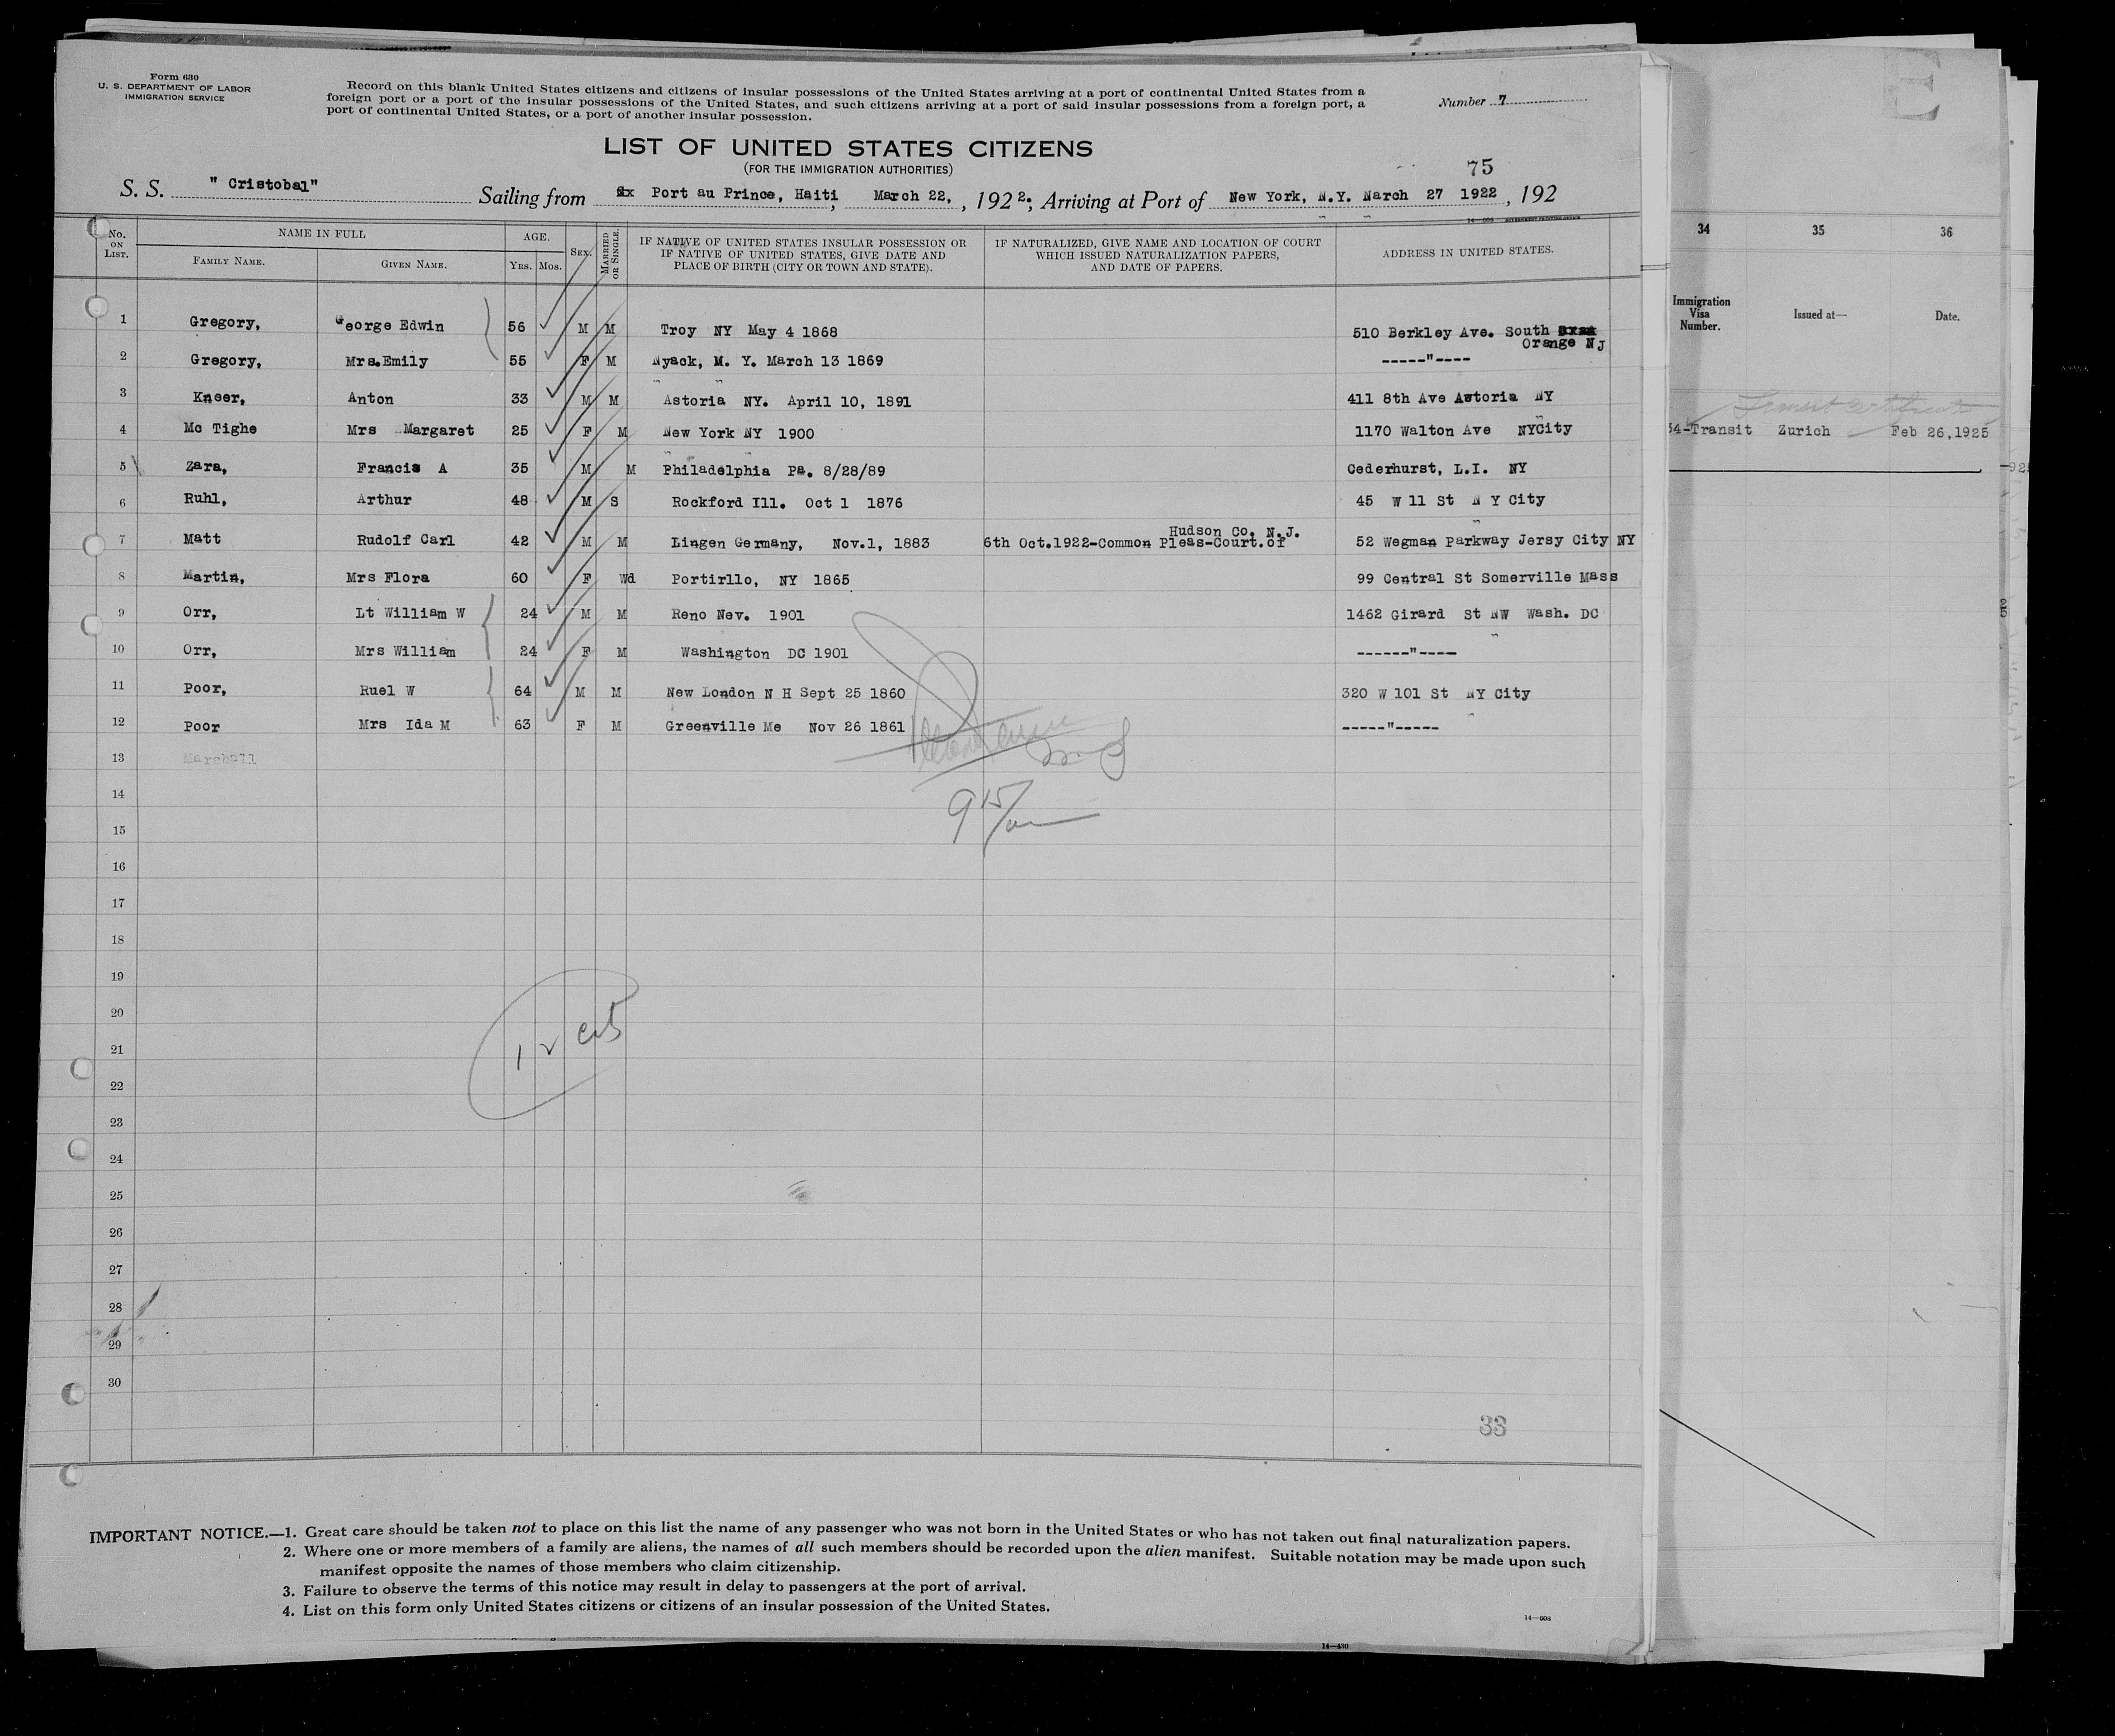 Form 630
U. S. DEPARTMENT OF LABOR
IMMIGRATION SERVICE
Record on this blank United States citizens and citizens of insular possessions of the United States arriving at a port of continental United States from a
foreign port or a port of the insular possessions of the United States, and such citizens arriving at a port of said insular possessions from a foreign port, a
port of continental United States, or a port of another insular possession.
Number 7
LIST OF UNITED STATES CITIZENS
(FOR THE IMMIGRATION AUTHORITIES)
75
S. S. " Cristobal" Sailing from Port au Prince, Haiti, March 22, , 1922; Arriving at Port of New York, N.Y. March 27 1922 , 192
No. ON LIST. NAME IN FULL AGE. SEX. MARRIED OR SINGLE. IF NATIVE OF UNITED STATES INSULAR POSSESSION OR IF NATIVE OF UNITED STATES, GIVE DATE AND PLACE OF BIRTH (CITY OR TOWN AND STATE). IF NATURALIZED, GIVE NAME AND LOCATION OF COURT WHICH ISSUED NATURALIZATION PAPERS, AND DATE OF PAPERS. ADDRESS IN UNITED STATES.
FAMILY NAME. GIVEN NAME. YRS. MOS.
1 Gregory, George Edwin 56 M M Troy NY May 4 1868 510 Berkley Ave. South
Orange NJ
2 Gregory, Mrs.Emily 55 F M Nyack, M. Y. March 13 1869 -----"----
3 Kneer, Anton 33 M M Astoria NY. April 10, 1891 411 8th Ave Astoria NY
4 Mc Tighe Mrs Margaret 25 F M New York NY 1900 1170 Walton Ave NYCity
5 Zara, Francis A 35 M M Philadelphia Pa. 8/28/89 Cederhurst, L.I. NY
6 Ruhl, Arthur 48 M S Rockford Ill. Oct 1 1876 45 W 11 St N Y City
7 Matt Rudolf Carl 42 M M Lingen Germany, Nov.1, 1883 6th Oct.1922-Common Pleas-Court.of Hudson Co. N.J. 52 Wegman Parkway Jersy City NY
8 Martin, Mrs Flora 60 F Wd Portirllo, NY 1865 99 Central St Somerville Mass
9 Orr, Lt William W 24 M M Reno Nev. 1901 1462 Girard St NW Wash. DC
10 Orr, Mrs William 24 F M Washington DC 1901 ------"----
11 Poor, Ruel W 64 M M New London N H Sept 25 1860 320 W 101 St NY City
12 Poor Mrs Ida M 63 F M Greenville Me Nov 26 1861 -----"-----
13 Marshall
14
9 15/
15
16
17
18
19
20
12 cit
21
22
23
24
25
26
27
28
29
30
33
IMPORTANT NOTICE.—1. Great care should be taken not to place on this list the name of any passenger who was not born in the United States or who has not taken out final naturalization papers.
2. Where one or more members of a family are aliens, the names of all such members should be recorded upon the alien manifest. Suitable notation may be made upon such
manifest opposite the names of those members who claim citizenship.
3. Failure to observe the terms of this notice may result in delay to passengers at the port of arrival.
4. List on this form only United States citizens or citizens of an insular possession of the United States.
14—608
14—430
34 35 36
Immigration Visa Number. Issued at— Date.
54-Transit Zurich Feb 26,1925